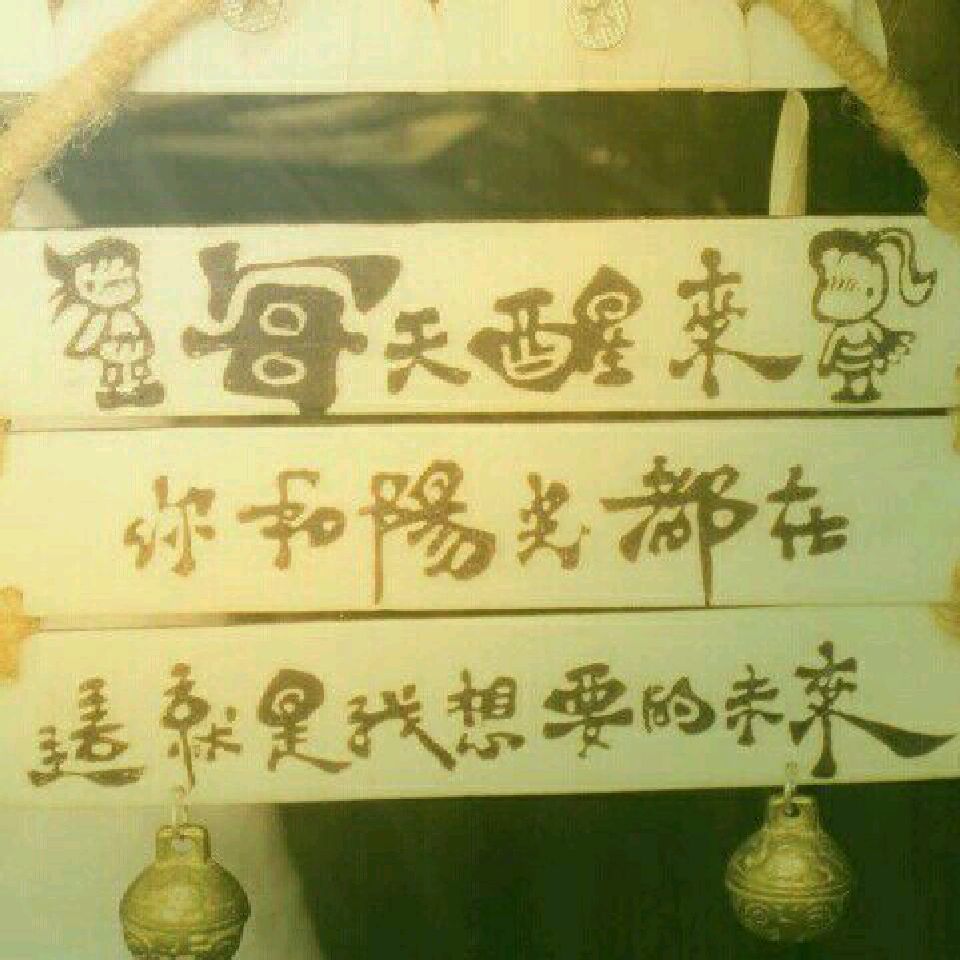 每天醒來
你和陽光都在
這就是我想要的未來